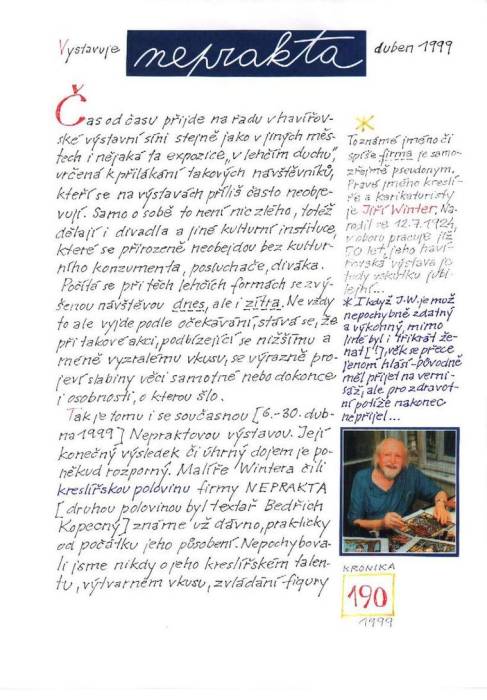 Vystavuje neprakta duben 1999
Čas od času přijde na řadu v havířov-
ské výstavní síni stejně jako v jiných měs-
tech i nějaká ta expozice „v lehčím duchu",
určená k přilákání takových návštěvníků,
kteří se na výstavách příliš často neobje-
vují. Samo o sobě to není nic zlého, totéž
dělají i divadla a jiné kulturní instituce,
které se přirozeně neobejdou bez kultur-
ního konzumenta, posluchače, diváka.
Počítá se při těch lehčích formách se zvý-
šenou návštěvou dnes, ale i zítra. Ne vždy
to ale vyjde podle očekávání, stává se, že
při takové akci, podbízející se nižšímu a
méně vyzrálemu vkusu, se výrazně pro-
jeví slabiny věci samotné nebo dokonce
i osobnosti, o kterou šlo.
Tak je tomu i se současnou [6.-30. dub-
na 1999] Nepraktovou výstavou. Její
konečný výsledek či úhrný dojem je po-
někud rozporný. Malíře Wintera čili
kreslířskou polovinu firmy NEPRAKTA
[druhou polovinou byl textař Bedřich
Kopecný] známe už dávno, prakticky
od počátku jeho působení. Nepochybova-
li jsme nikdy o jeho kreslířském talen-
tu, výtvarném vkusu, zvládání figury
*
To známé jméno či
spíše firma je samo-
zřejmě pseudonym.
Pravé jméno kreslí-
ře a karikaturisty
je Jiří Winter. Na-
rodil se 12.7.1924,
v oboru pracuje již
50 let, jeho haví-
řovská výstava je
tedy zakutku jubi-
lejní...
* I když J.W. je muž
nepochybně zdatný
a výkonný, mimo
jiné byl i třikrát že-
nat [!], věk se přece
jenom hlásí - původně
měl přijet na verni-
sáž, ale pro zdravot-
ní potíže nakonec
nepřijel...
KRONIKA
190
1999